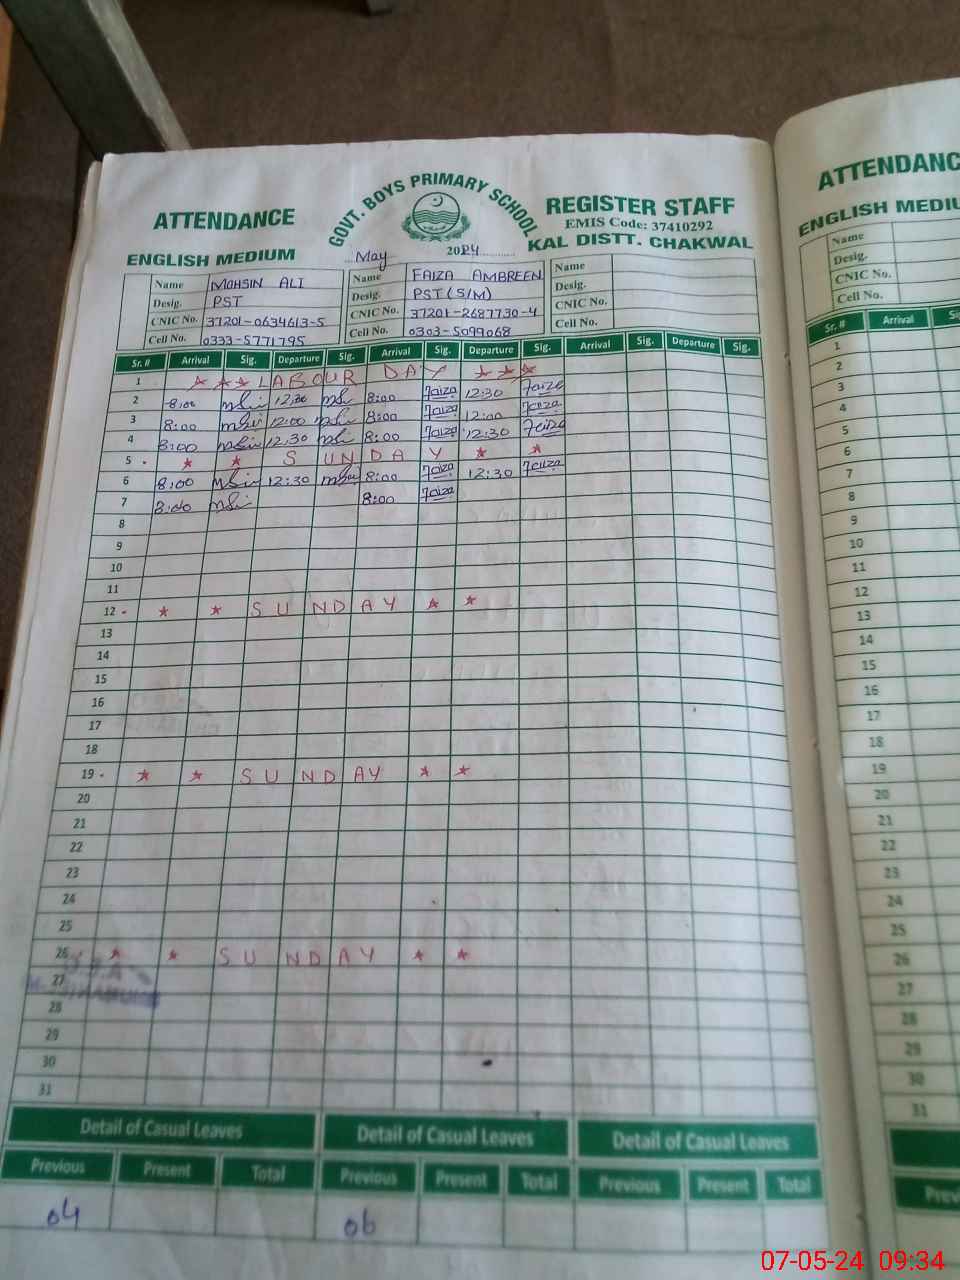 GOVT. BOYS PRIMARY SCHOOL
ATTENDANCE REGISTER STAFF
EMIS Code: 37410292
ENGLISH MEDIUM May 2024 KAL DISTT. CHAKWAL
Name MOHSIN ALI Name FAIZA AMBREEN Name
Desig. PST Desig. PST (S/M) Desig.
CNIC No. 37201-0634613-5 CNIC No. 37201-2687730-4 CNIC No.
Cell No. 0333-5771795 Cell No. 0303-5099068 Cell No.
Sr. # Arrival Sig. Departure Sig. Arrival Sig. Departure Sig. Arrival Sig. Departure Sig.
1 ★ ★ ★ LABOUR DAY ★ ★ ★
2 8:00 12:30 8:00 Faiza 12:30 Faiza
3 8:00 12:00 8:00 Faiza 12:00 Faiza
4 8:00 12:30 8:00 Faiza 12:30 Faiza
5 ★ ★ SUNDAY ★ ★
6 8:00 12:30 8:00 Faiza 12:30 Faiza
7 8:00 8:00 Faiza
8
9
10
11
12 ★ ★ SUNDAY ★ ★
13
14
15
16
17
18
19 ★ ★ SUNDAY ★ ★
20
21
22
23
24
25
26 ★ ★ SUNDAY ★ ★
27
28
29
30
31
Detail of Casual Leaves Detail of Casual Leaves Detail of Casual Leaves
Previous Present Total Previous Present Total Previous Present Total
04 06
ATTENDANC
ENGLISH MEDIU
Name
Desig.
CNIC No.
Cell No.
Sr. # Arrival
1
2
3
4
5
6
7
8
9
10
11
12
13
14
15
16
17
18
19
20
21
22
23
24
25
26
27
28
29
30
31
07-05-24 09:34